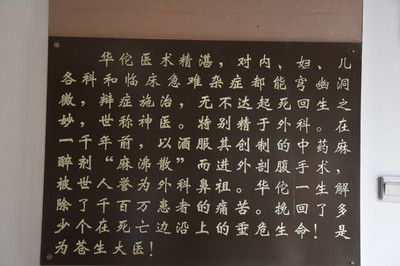 华佗医术精湛，对内、妇、儿
各科和临床急难杂症都能穹幽洞
微，辩症施治，无不达起死回生之
妙，世称神医。特别精于外科。在
一千年前，以酒服其创制的中药麻，
醉剂“麻沸散”而进外剖腹手术，
被世人誉为外科鼻祖。华佗一生，解
除了千百万患者的痛苦。挽回了多
少个在死亡边沿上的垂危生命！是
为苍生大医！